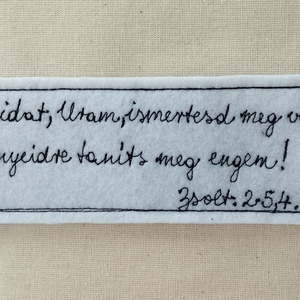 idat, Uram, ismertesd meg v
nyeidre taníts meg engem!
Zsolt. 25,4.